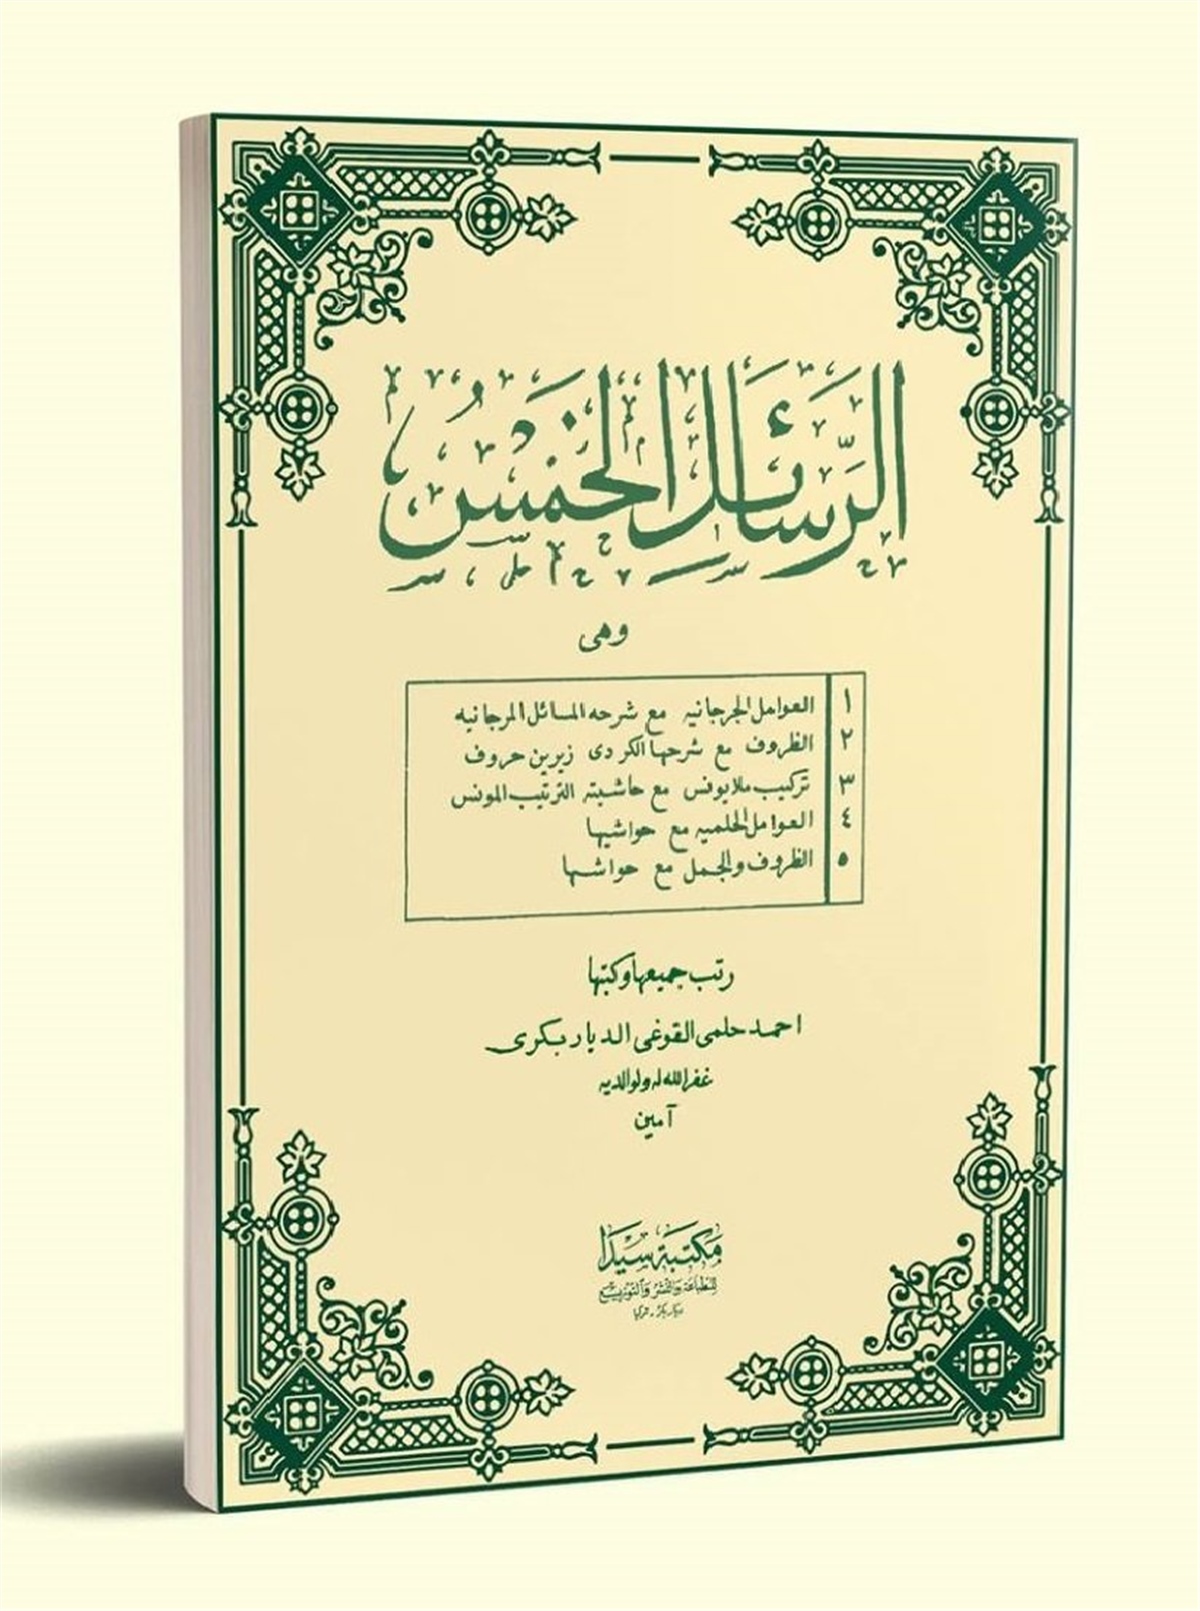 الرَّسَائِلُ الخَمْسُ
وهى
١ العوامل الجرجانيه مع شرحه المسائل المرجانيه
٢ الظروف مع شرحها الكردى زيرين حروف
٣ تركيب ملايونس مع حاشيته الترتيب المونس
٤ العوامل الحلميه مع حواشيها
٥ الظروف والجمل مع حواشها
رتب جميعها وكتبها
احمد حلمى القوغى الديار بكرى
غفر الله له ولوالديه
آمين
مكتبة سيدا
للطباعة والنشر والتوزيع
ديار بكر - تركيا